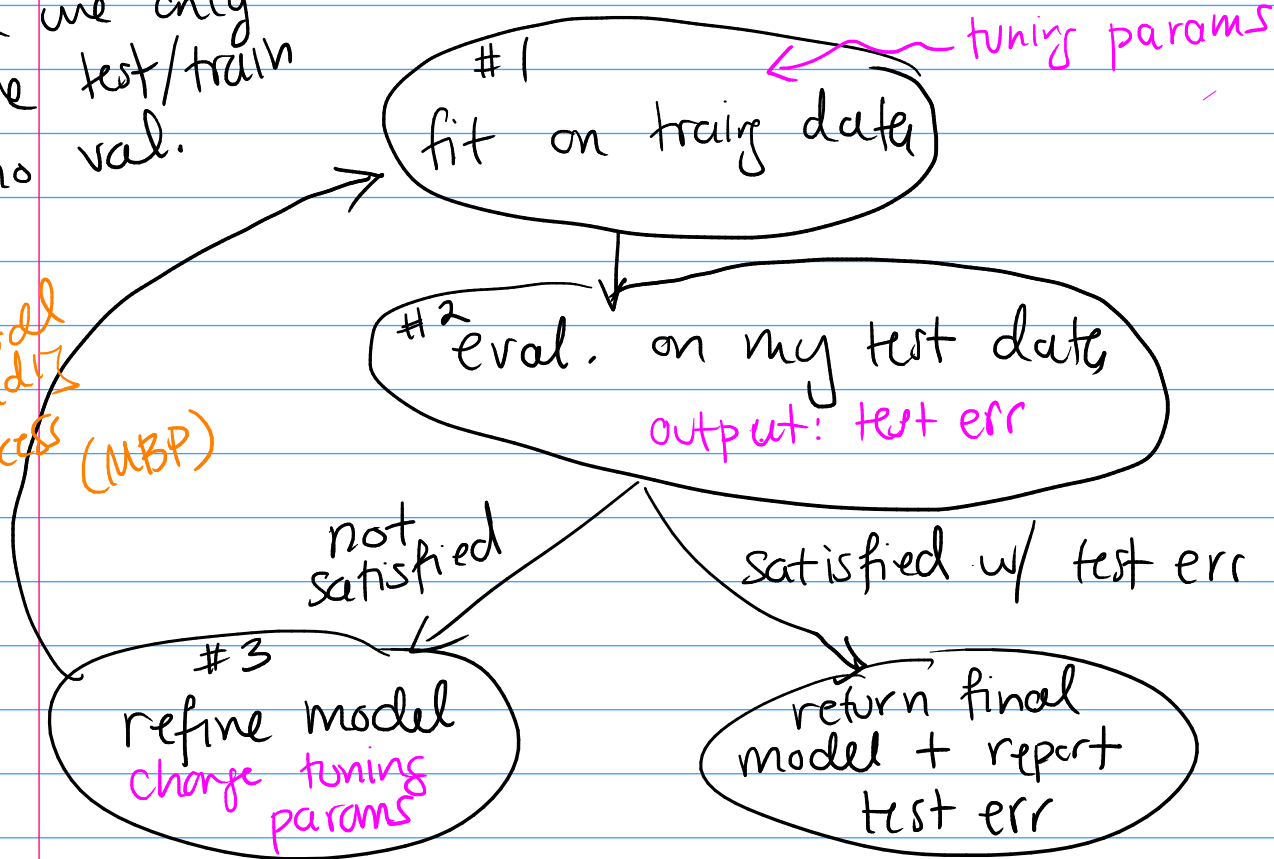 we only
test/train
no val.
tuning params
#1
fit on traing data
#2
eval. on my test data
output: test err
(MBP)
not
satisfied
satisfied w/ test err
#3
refine model
change tuning
params
return final
model + report
test err